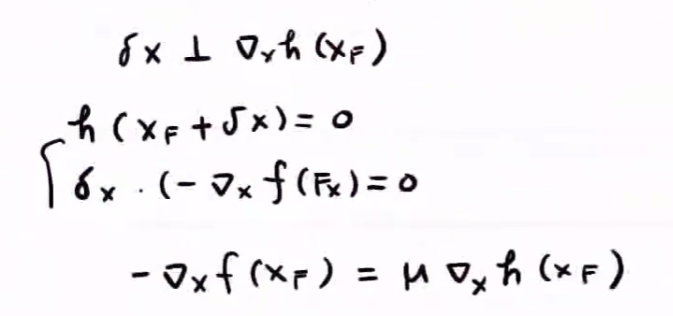 δx ⊥ ∇ₓh (x_F)
h (x_F + δx) = 0
δx · (- ∇ₓ f (Fx) = 0
- ∇ₓf (x_F) = μ ∇ₓ h (x_F)